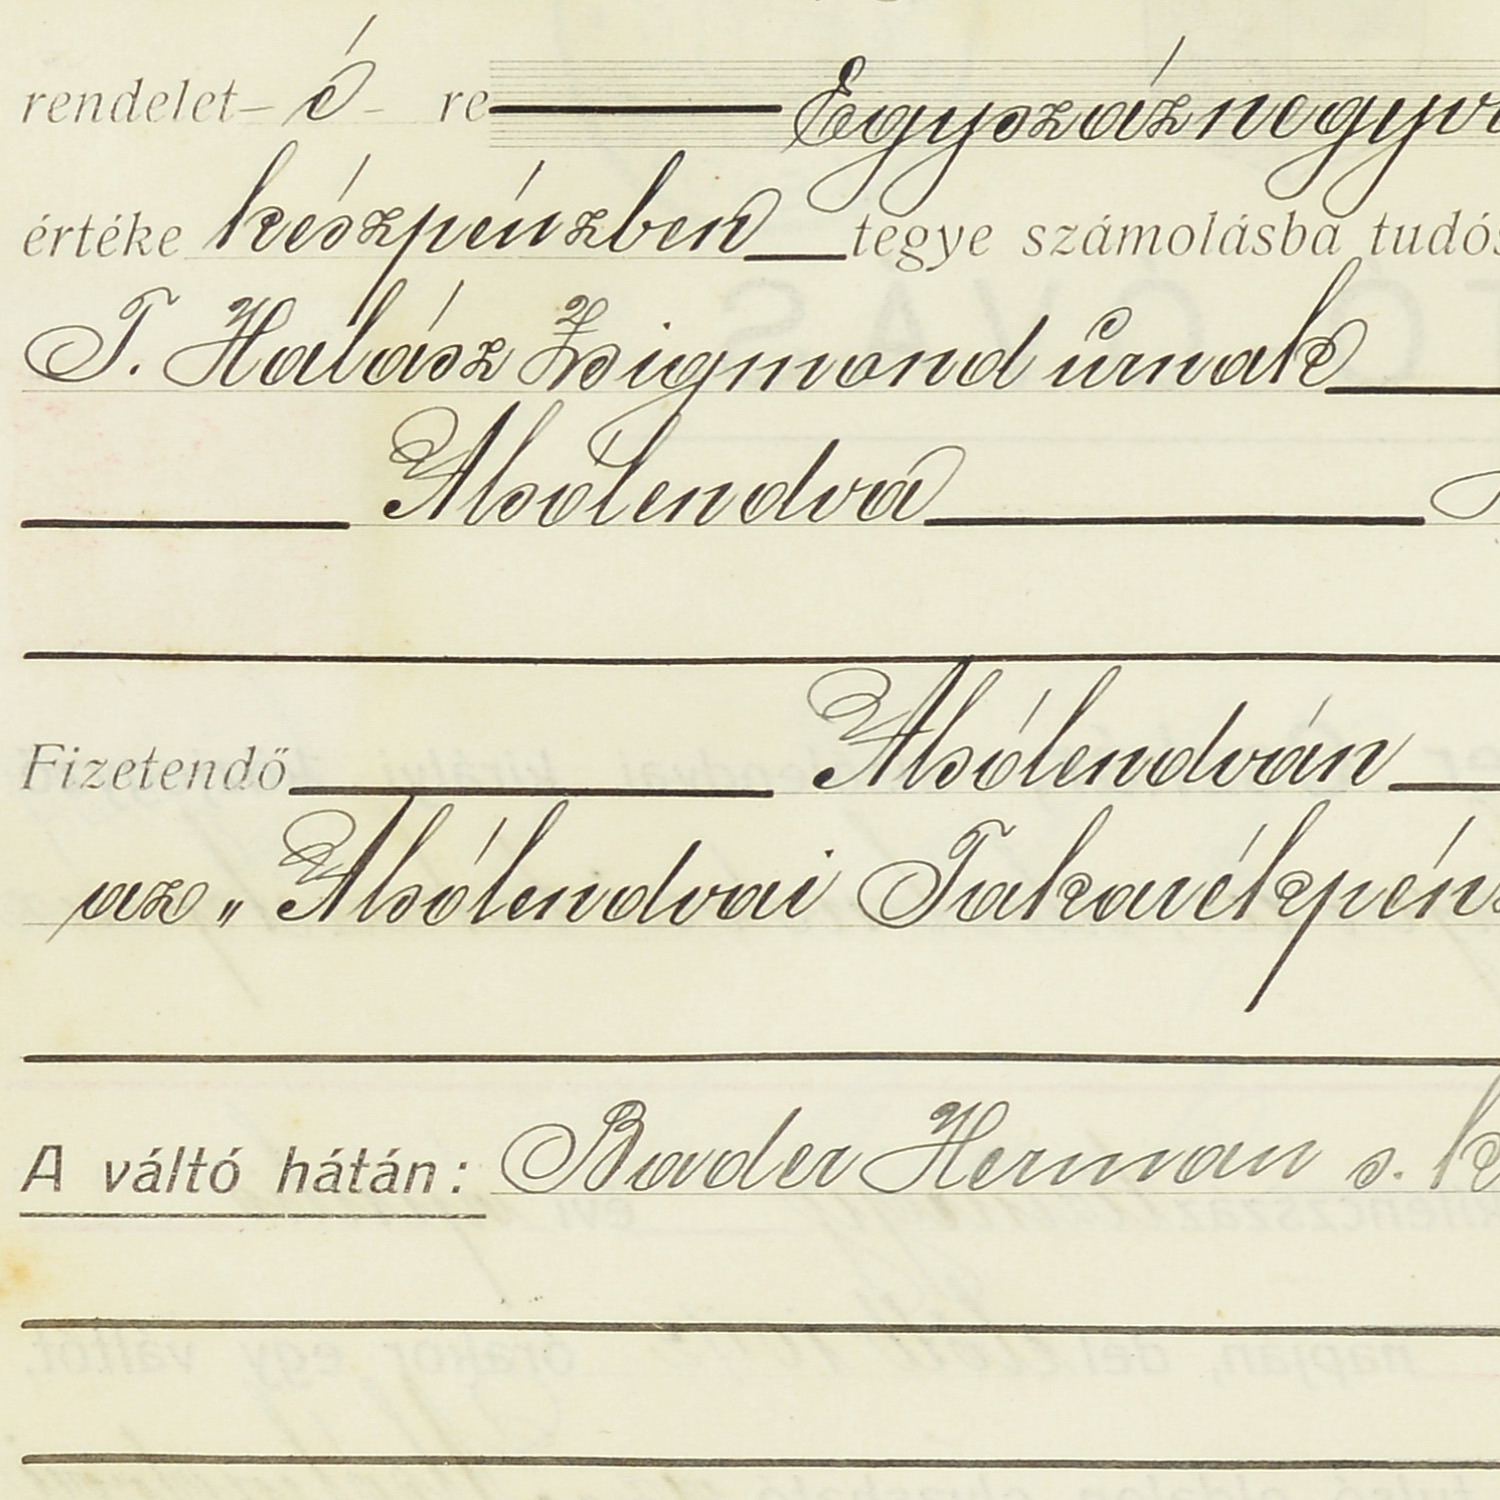 rendelet- é - re Egyszáznegyv
értéke készpénzben tegye számolásba tudós
T. Halász Zsigmond úrnak
Alsólendva
Fizetendő Alsólendván
az „Alsólendvai Takarékpénz
A váltó hátán: Bader Herman s. k